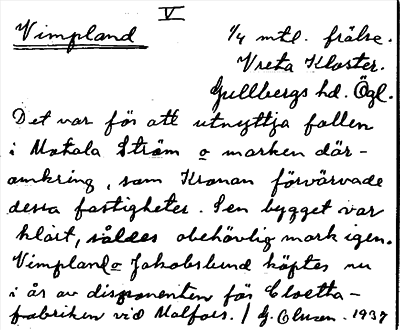 V
Vimpland
1/4 mtl. frälse.
Vreta Kloster.
Gullbergs hd. Ögl.
Det var för att utnyttja fallen
i Motala Ström o marken där-
omkring, som Kronan förvärvade
dessa fastigheter. Sen bygget var
klart, såldes obehövlig mark igen.
Vimpland o Jakobslund köptes nu
i år av disponenten för Cloetta-
fabriken vid Malfors. / G. Olsson. 1937